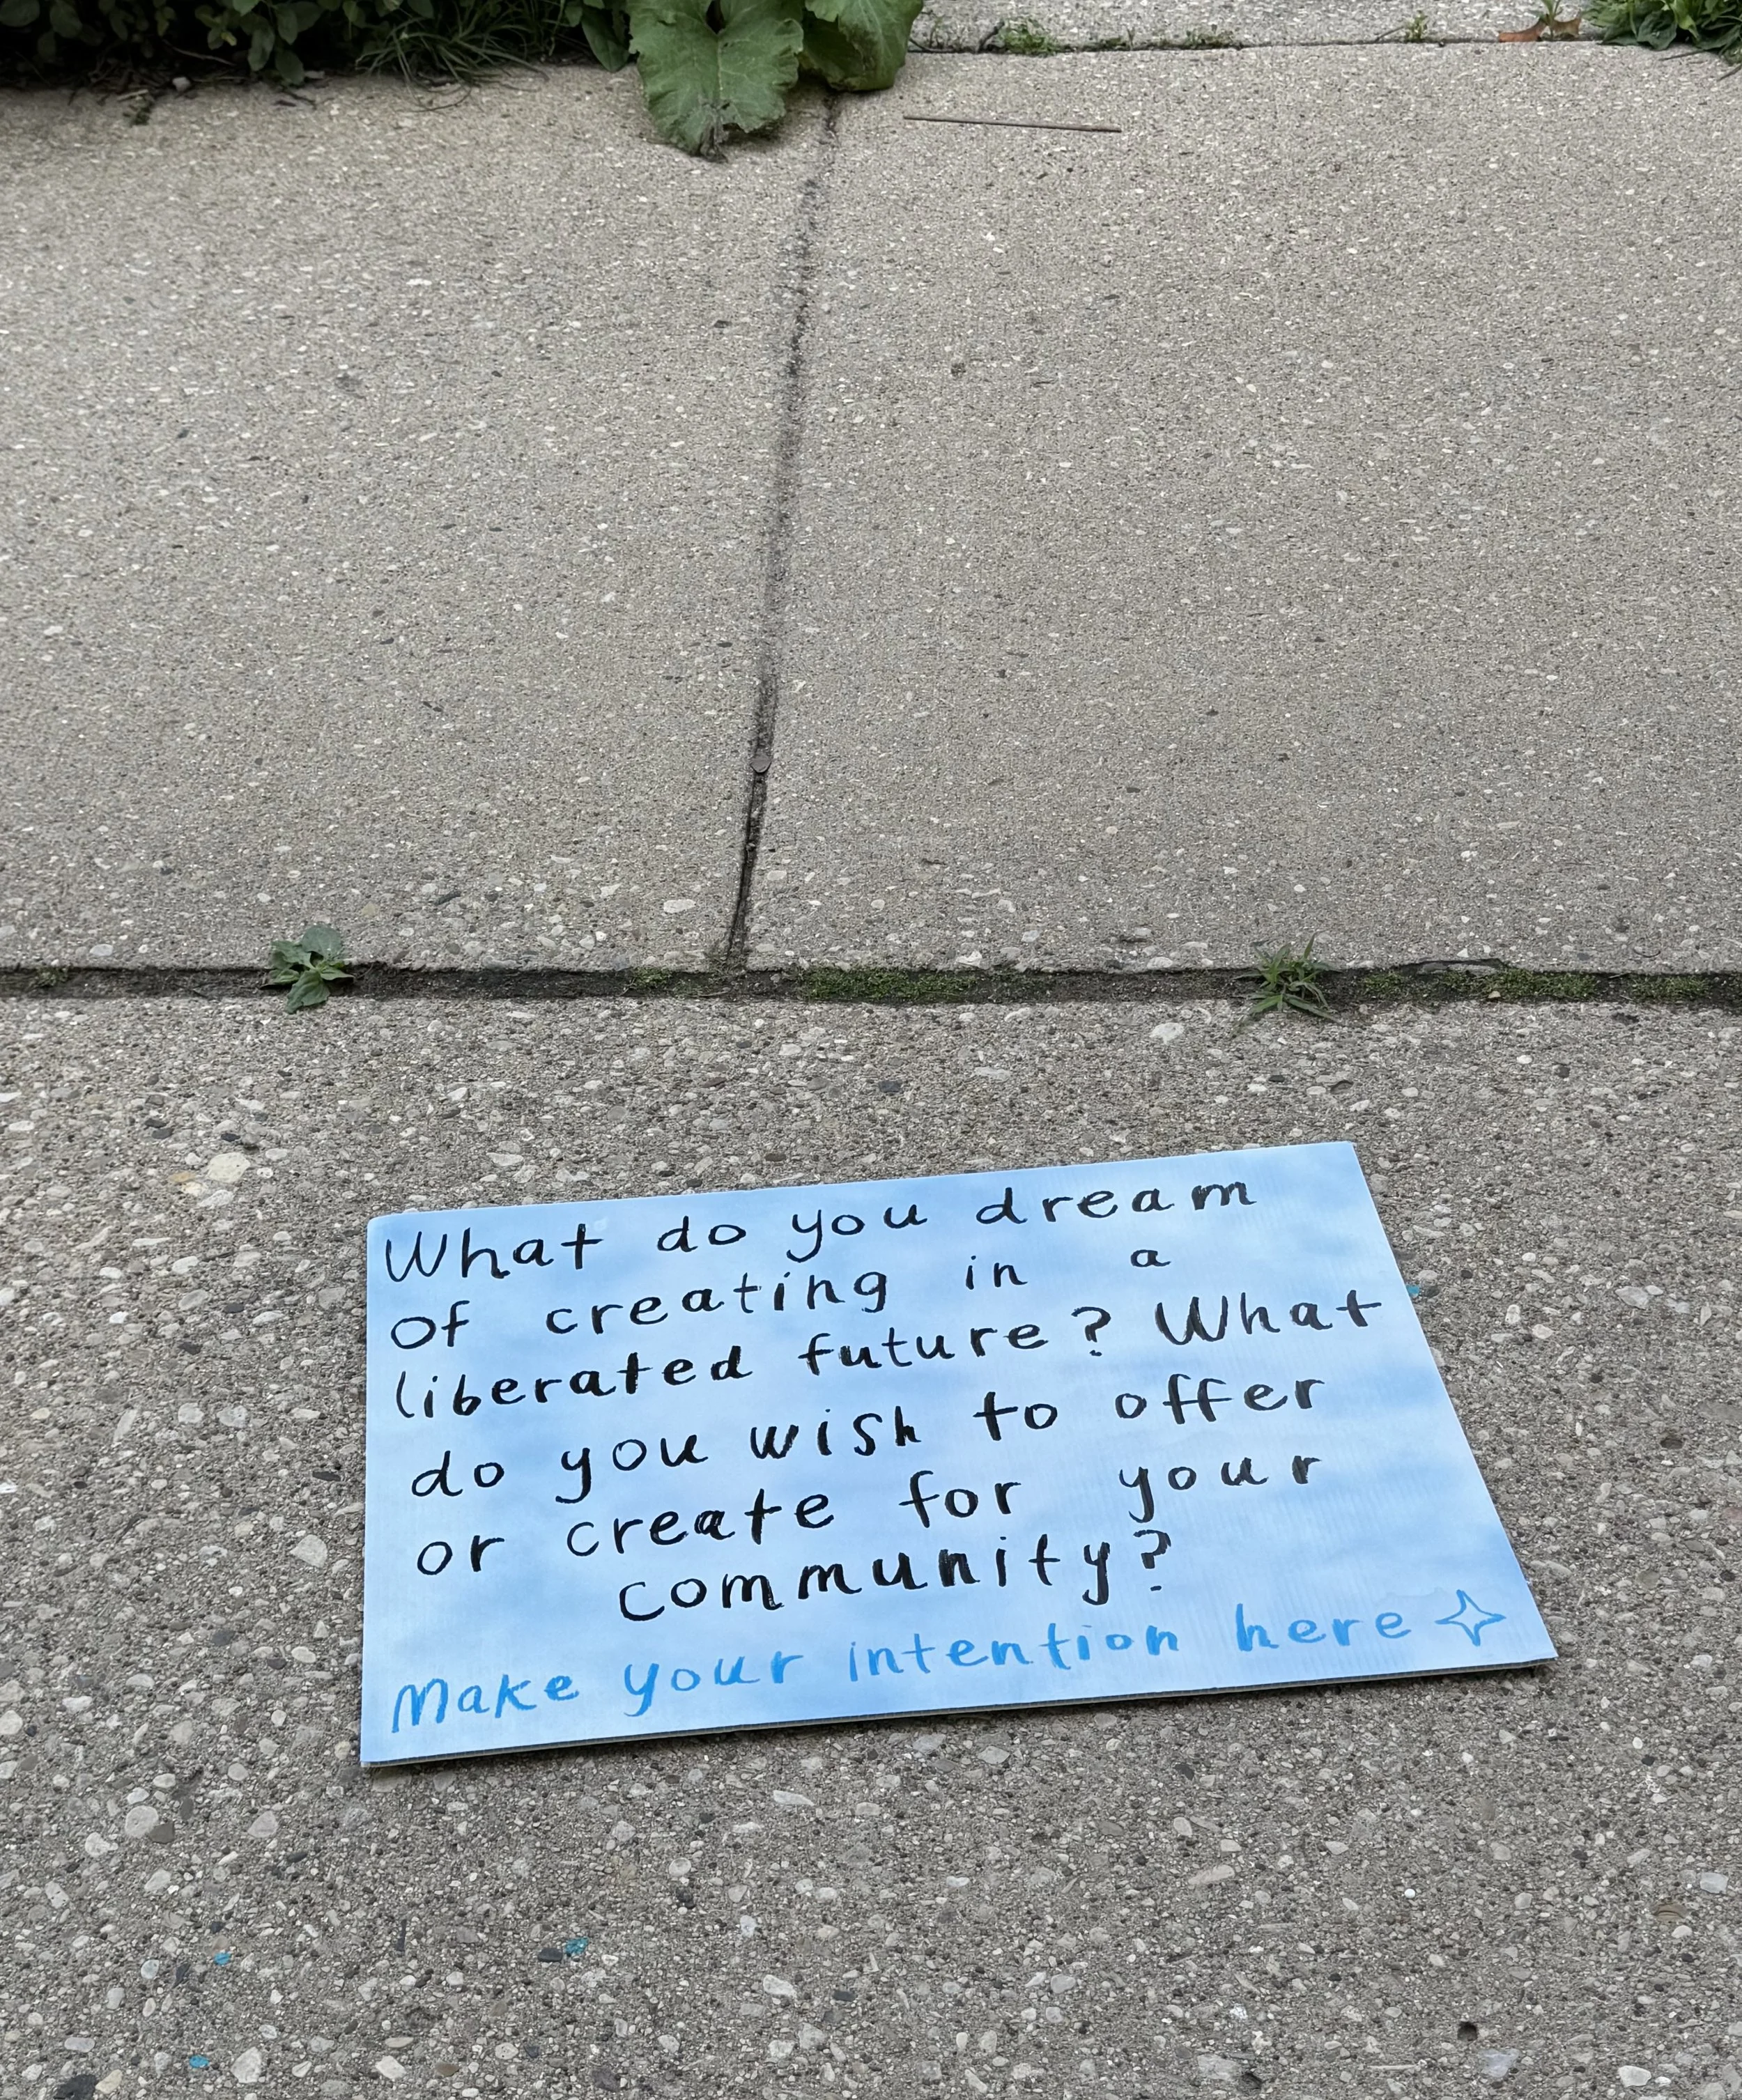 What do you dream
of creating in a
liberated future? What
do you wish to offer
or create for your
community?
Make your intention here